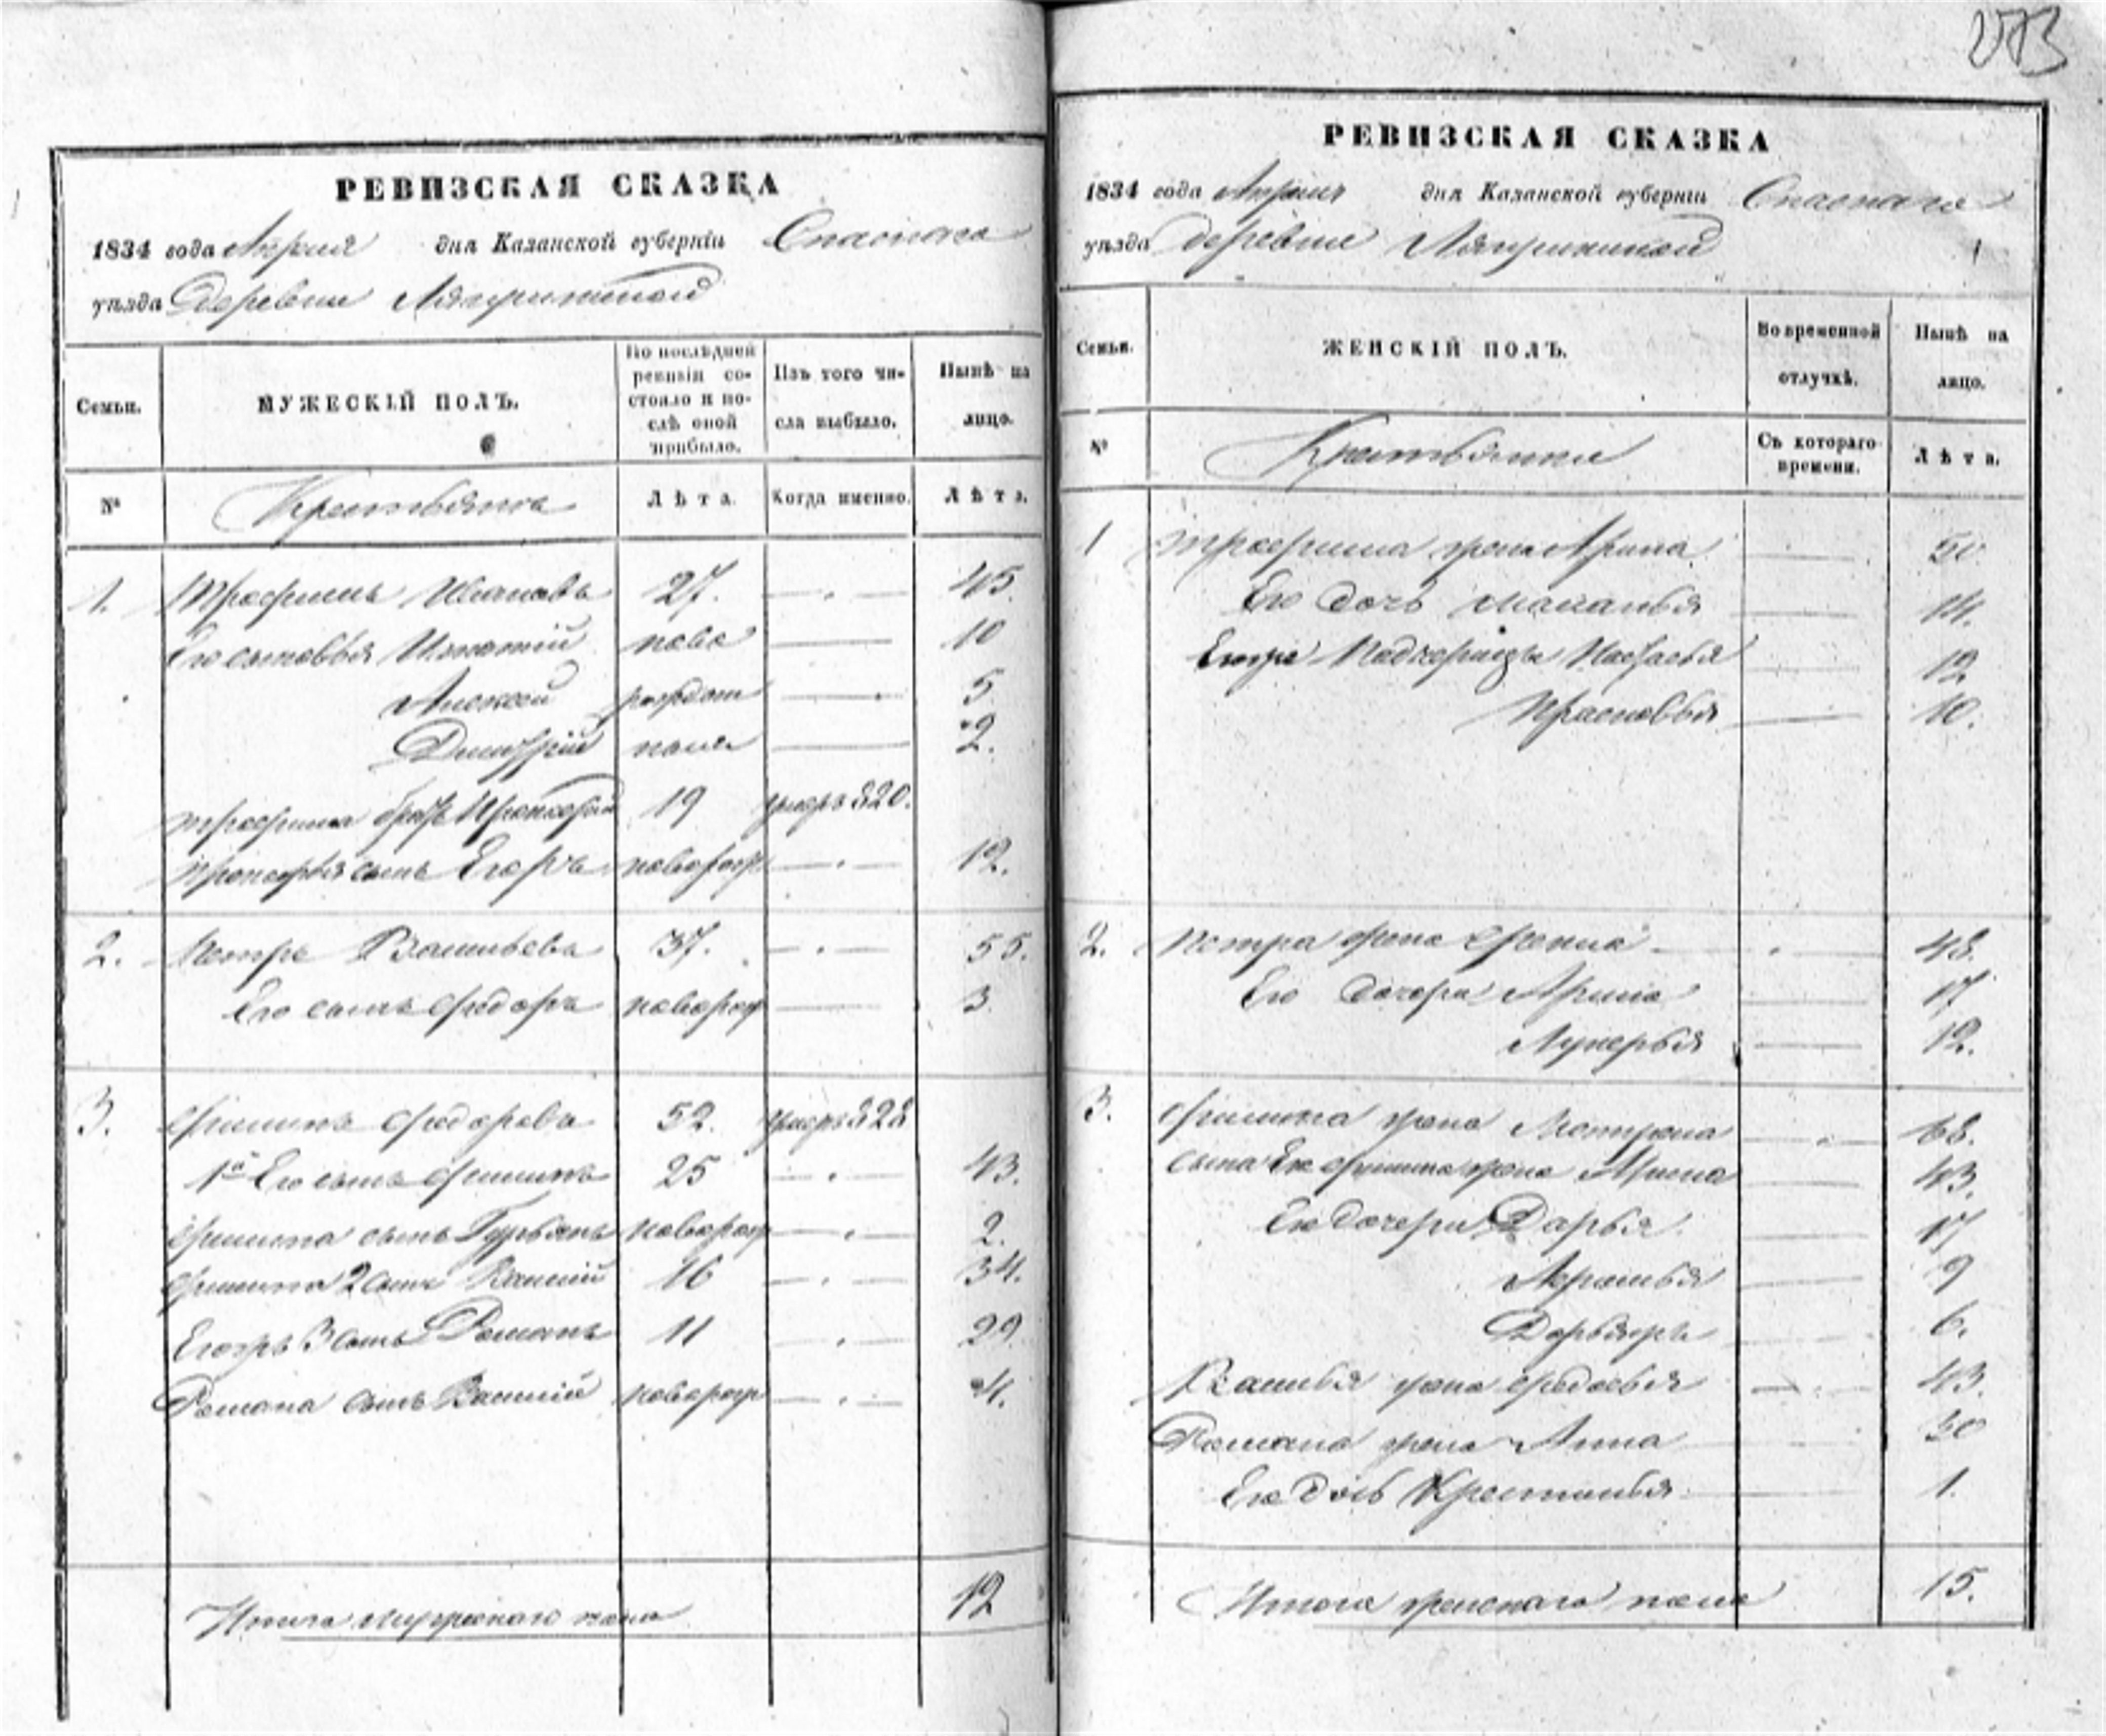 273
РЕВИЗСКАЯ СКАЗКА
1834 года Апреля дня Казанской губерніи Спаскаго
уѣзда деревни
Семьи. МУЖЕСКІЙ ПОЛЪ. По послѣдней ревизіи состояло и послѣ оной прибыло. Изъ того числа выбыло. Нынѣ на лицо.
№ Крестьяне Лѣта. Когда именно. Лѣта.
1. Трофимъ Ивановъ 27. 45.
Его сыновья Игнатій ново 10
Алексей рожден 5
Дмитрій ныя 2.
Трофима братъ Прокофей 19 умеръ 820.
Прокофья сынъ Егоръ новорож 12.
2. Петръ Васильевъ 37. 55.
Его сынъ Федоръ новорож 3.
3. Филипъ Федоровъ 52. умеръ 828
1й Его сынъ Филипъ 25 43.
Филипа сынъ Гурьянъ новорож 2.
Филипа 2 сынъ Василій 16 34.
Егожъ 3 сынъ Романъ 11 29.
Романа сынъ Василій новорож 4.
Итого мужескаго пола 12
РЕВИЗСКАЯ СКАЗКА
1834 года Апреля дня Казанской губерніи Спаскаго
уѣзда деревни
Семьи. ЖЕНСКІЙ ПОЛЪ. Во временной отлучкѣ. Нынѣ на лицо.
№ Крестьянки Съ котораго времени. Лѣта.
1 Трофима жена Арина 50
Его дочь Маланья 14.
Егожъ Падчерицы Настасья 12
Прасковья 10.
2. Петра жена 48.
Его дочери Арина 17
Лукерья 12.
3. Филипа жена Матрена 68.
сына Его Филипа жена 43.
Его дочери Дарья 17
9
6.
Василья жена Федосья 43.
Романа жена Анна 30
Его дочь 1.
Итого женскаго пола 15.